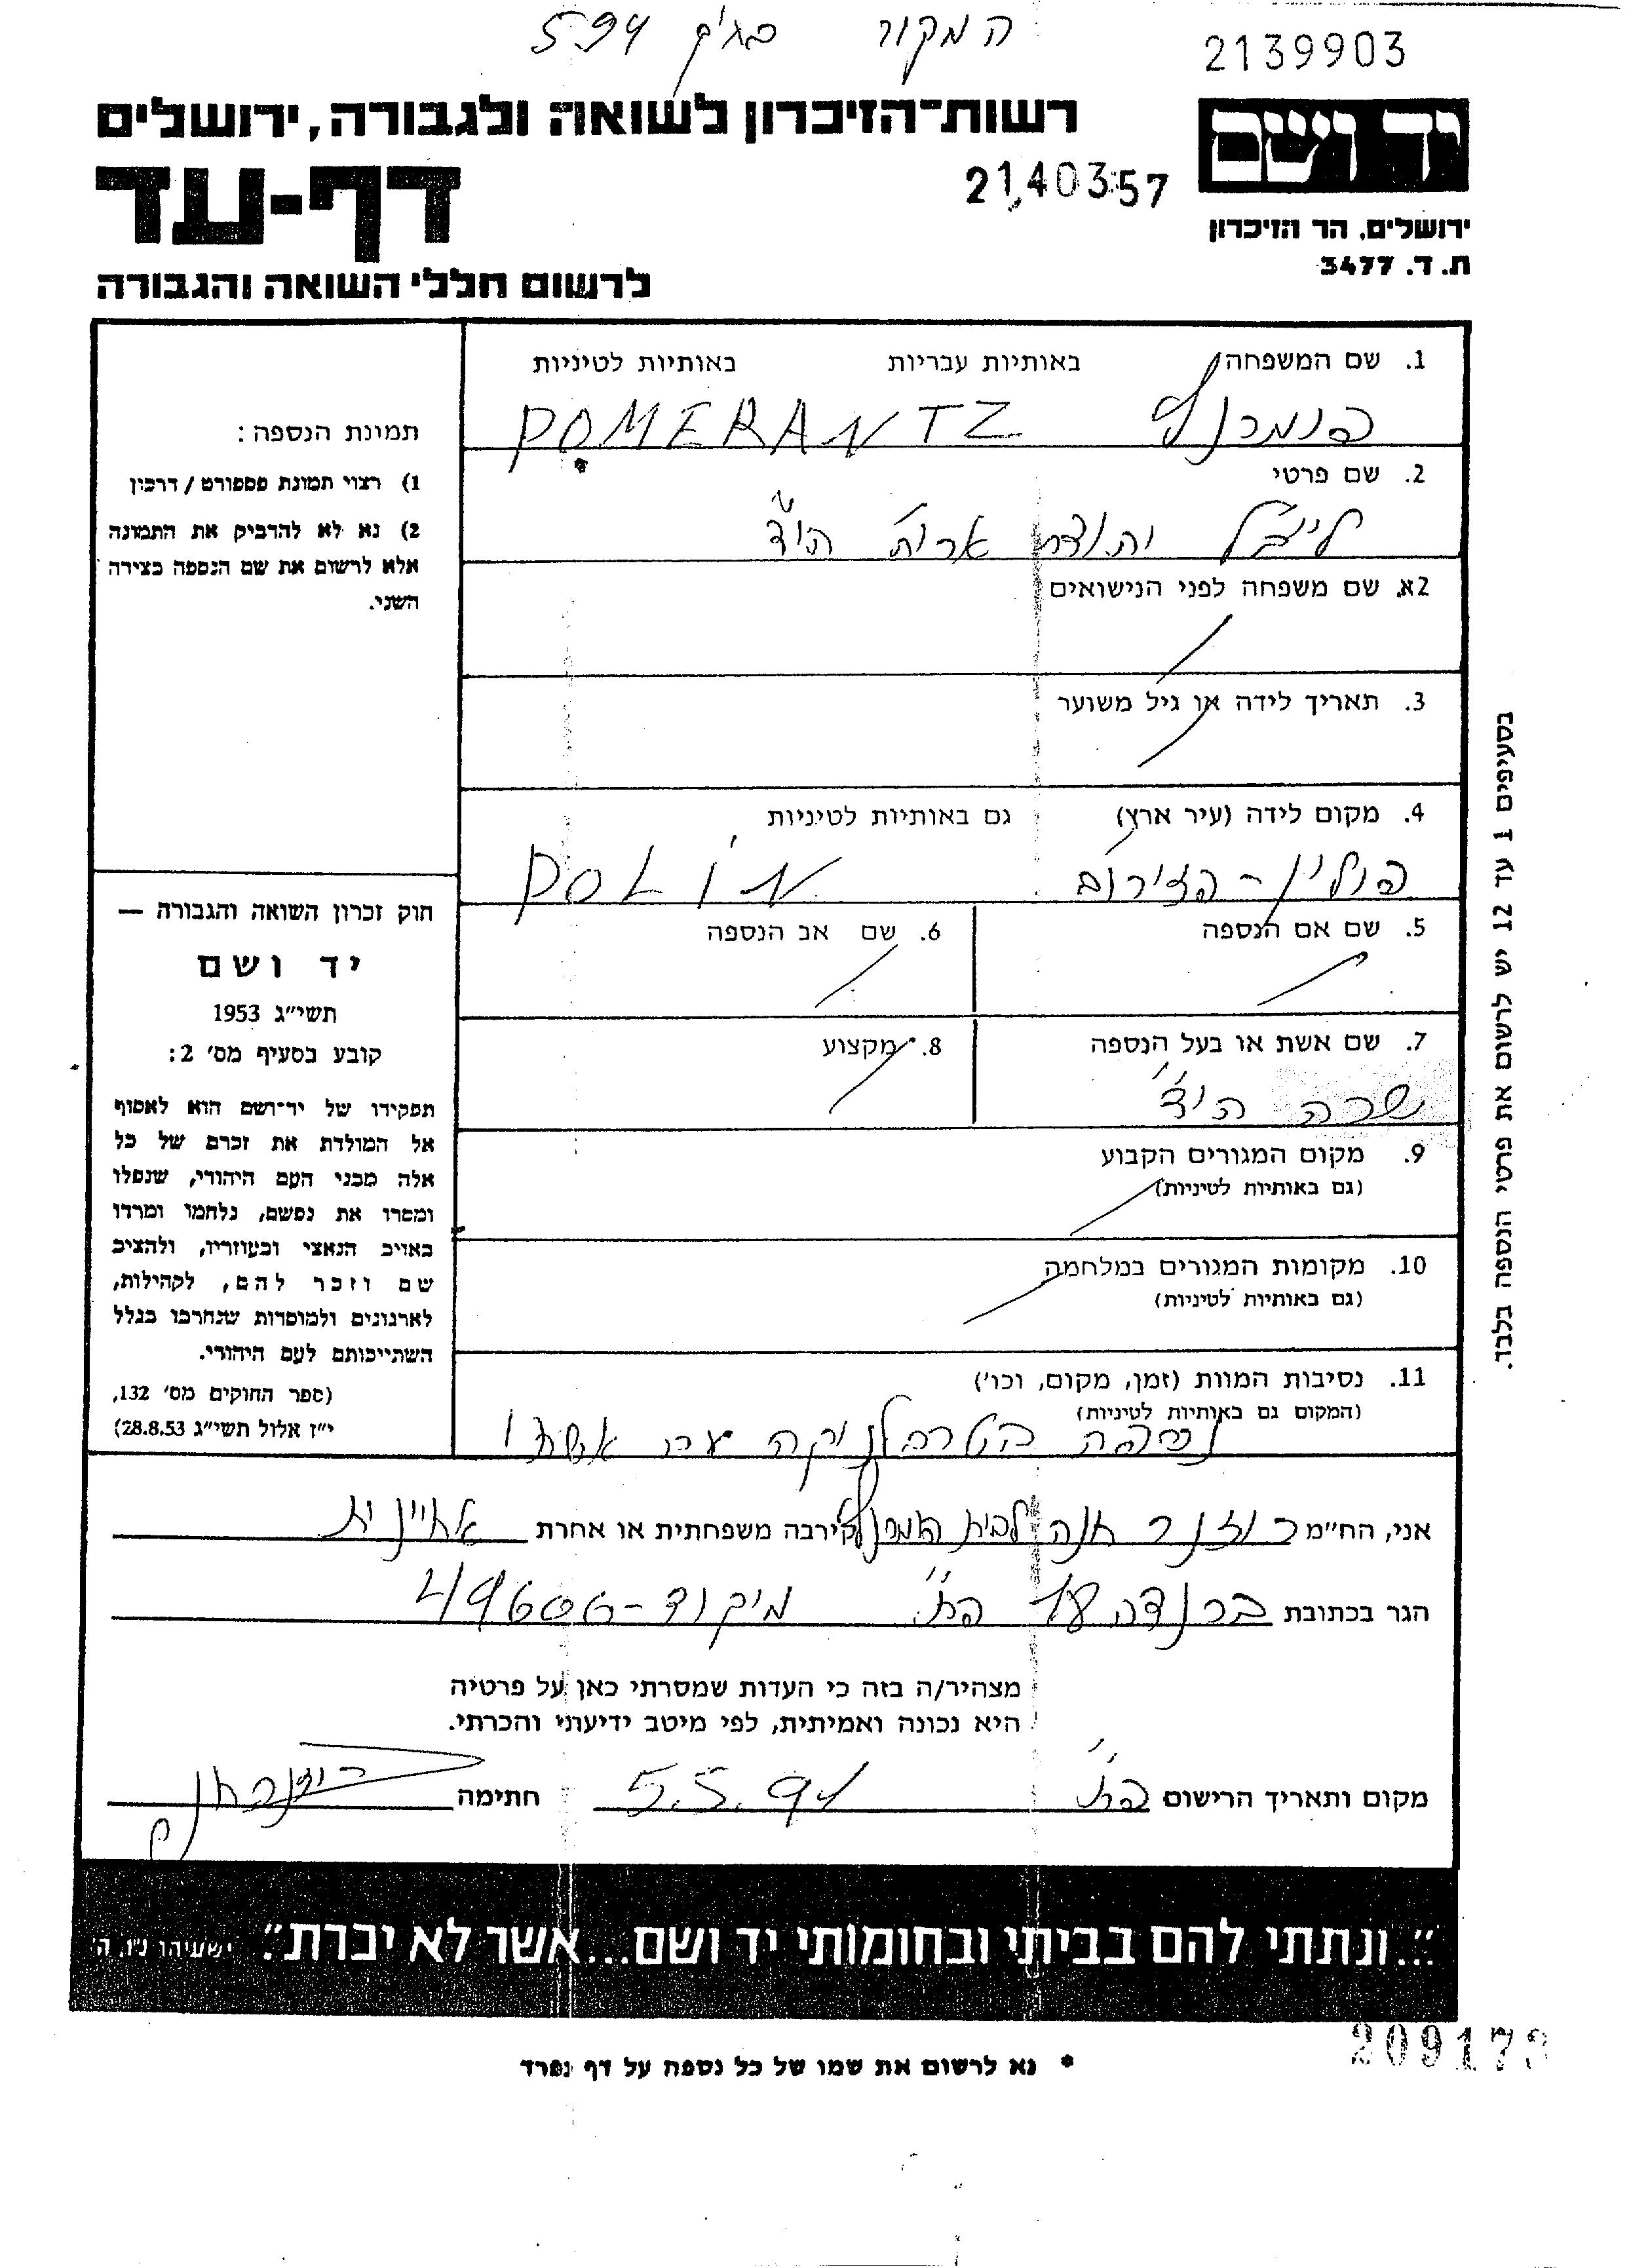 המקור בתיק 594
2139903
רשות-הזיכרון לשואה ולגבורה, ירושלים
יד ושם
דף-עד
21,40357
ירושלים, הר הזיכרון
ת. ד. 3477
לרשום חללי השואה והגבורה
1. שם המשפחה באותיות עבריות באותיות לטיניות
פומרנץ POMERANTZ
2. שם פרטי
לייבל יהודה אריה הי"ד
2א. שם משפחה לפני הנישואים
3. תאריך לידה או גיל משוער
4. מקום לידה (עיר ארץ) גם באותיות לטיניות
פולין - POLIN
5. שם אם הנספה
6. שם אב הנספה
7. שם אשת או בעל הנספה
שרה הי"ד
8. מקצוע
9. מקום המגורים הקבוע
(גם באותיות לטיניות)
10. מקומות המגורים במלחמה
(גם באותיות לטיניות)
11. נסיבות המוות (זמן, מקום, וכו')
(המקום גם באותיות לטיניות)
נספה בטרבלינקה עם אשתו
תמונת הנספה:
1) רצוי תמונת פספורט / דרכון
2) נא לא להדביק את התמונה
אלא לרשום את שם הנספה בצידה
השני.
חוק זכרון השואה והגבורה —
יד ושם
תשי"ג 1953
קובע בסעיף מס' 2:
תפקידו של יד-ושם הוא לאסוף
אל המולדת את זכרם של כל
אלה מבני העם היהודי, שנפלו
ומסרו את נפשם, נלחמו ומרדו
באויב הנאצי ובעוזריו, ולהציב
שם וזכר להם, לקהילות,
לארגונים ולמוסדות שנחרבו בגלל
השתייכותם לעם היהודי.
(ספר החוקים מס' 132,
י"ז אלול תשי"ג 28.8.53)
בסעיפים 1 עד 12 יש לרשום את פרטי הנספה בלבד.
אני, הח"מ רוזנר חנה לבית פומרנץ קירבה משפחתית או אחרת אחיינית
הגר בכתובת ברנדה פ"ת מיקוד - 49600
מצהיר/ה בזה כי העדות שמסרתי כאן על פרטיה
היא נכונה ואמיתית, לפי מיטב ידיעתי והכרתי.
מקום ותאריך הרישום פ"ת 5.5.94 חתימה
"...ונתתי להם בביתי ובחומותי יד ושם...אשר לא יכרת". ישעיהו נ"ו, ה'
209173
* נא לרשום את שמו של כל נספה על דף נפרד